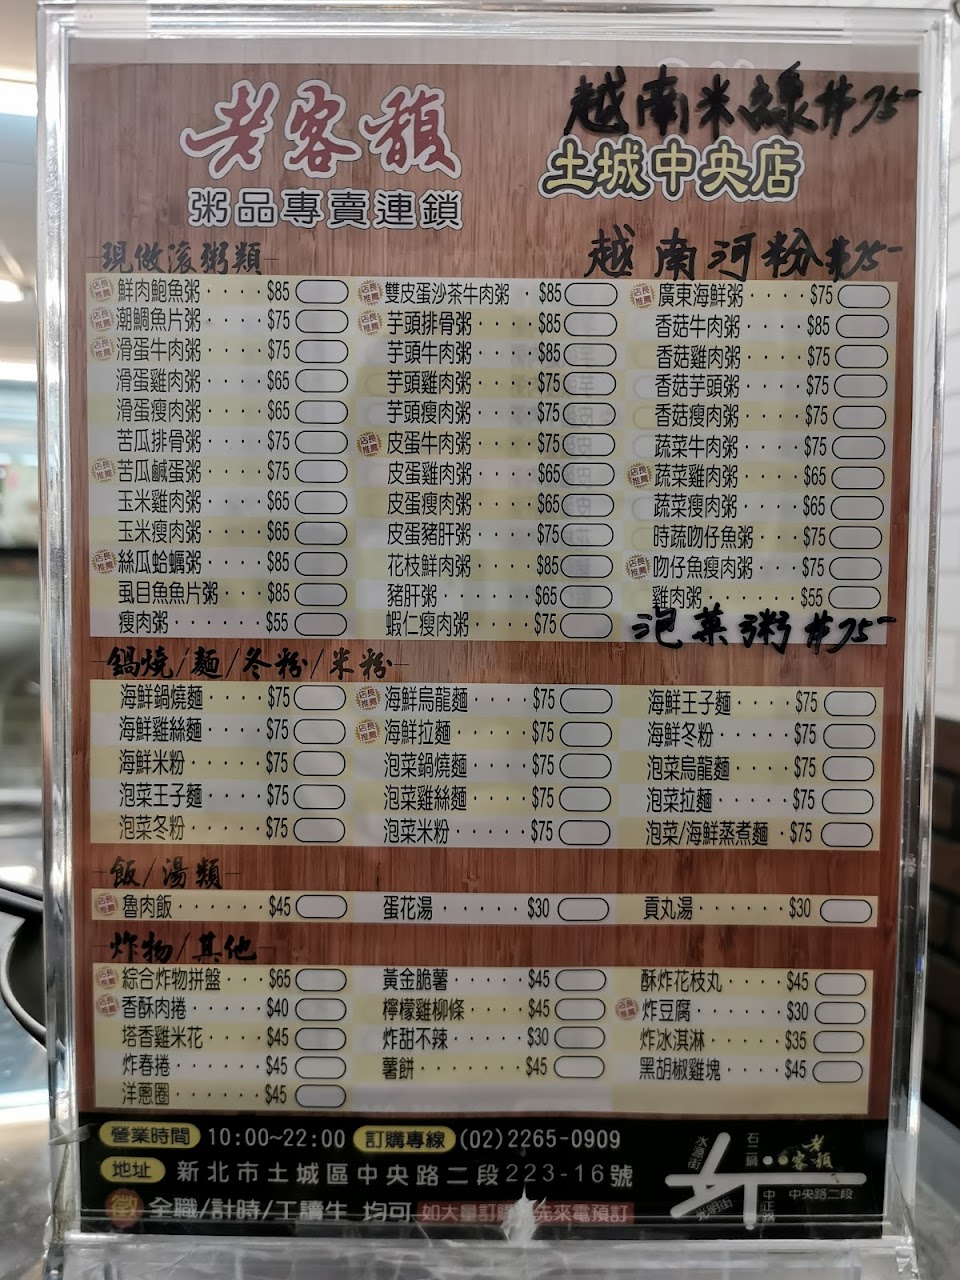 老客馥
粥品專賣連鎖
越南米線 $75
土城中央店
越南河粉 $75
現做滾粥類
店長推薦 鮮肉鮑魚粥 $85
店長推薦 潮鯛魚片粥 $75
店長推薦 滑蛋牛肉粥 $75
滑蛋雞肉粥 $65
滑蛋瘦肉粥 $65
苦瓜排骨粥 $75
店長推薦 苦瓜鹹蛋粥 $75
玉米雞肉粥 $65
玉米瘦肉粥 $65
店長推薦 絲瓜蛤蠣粥 $85
虱目魚魚片粥 $85
瘦肉粥 $55
店長推薦 雙皮蛋沙茶牛肉粥 $85
店長推薦 芋頭排骨粥 $85
芋頭牛肉粥 $85
芋頭雞肉粥 $75
芋頭瘦肉粥 $75
店長推薦 皮蛋牛肉粥 $75
皮蛋雞肉粥 $65
皮蛋瘦肉粥 $65
皮蛋豬肝粥 $75
花枝鮮肉粥 $85
豬肝粥 $65
蝦仁瘦肉粥 $75
店長推薦 廣東海鮮粥 $75
香菇牛肉粥 $85
香菇雞肉粥 $75
香菇芋頭粥 $75
香菇瘦肉粥 $75
蔬菜牛肉粥 $75
店長推薦 蔬菜雞肉粥 $65
蔬菜瘦肉粥 $65
時蔬吻仔魚粥 $75
店長推薦 吻仔魚瘦肉粥 $75
雞肉粥 $55
泡菜粥 $75
鍋燒/麵/冬粉/米粉
海鮮鍋燒麵 $75
海鮮雞絲麵 $75
海鮮米粉 $75
泡菜王子麵 $75
泡菜冬粉 $75
店長推薦 海鮮烏龍麵 $75
店長推薦 海鮮拉麵 $75
泡菜鍋燒麵 $75
泡菜雞絲麵 $75
泡菜米粉 $75
海鮮王子麵 $75
海鮮冬粉 $75
泡菜烏龍麵 $75
泡菜拉麵 $75
泡菜/海鮮蒸煮麵 $75
飯/湯類
店長推薦 魯肉飯 $45
蛋花湯 $30
貢丸湯 $30
炸物/其他
店長推薦 綜合炸物拼盤 $65
店長推薦 香酥肉捲 $40
塔香雞米花 $45
炸春捲 $45
洋蔥圈 $45
黃金脆薯 $45
檸檬雞柳條 $45
炸甜不辣 $30
薯餅 $45
酥炸花枝丸 $45
店長推薦 炸豆腐 $30
炸冰淇淋 $35
黑胡椒雞塊 $45
營業時間 10:00~22:00 訂購專線 (02)2265-0909
地址 新北市土城區中央路二段223-16號
徵 全職/計時/工讀生 均可 如大量訂購 先來電預訂
石二鍋
老客馥
中央路二段